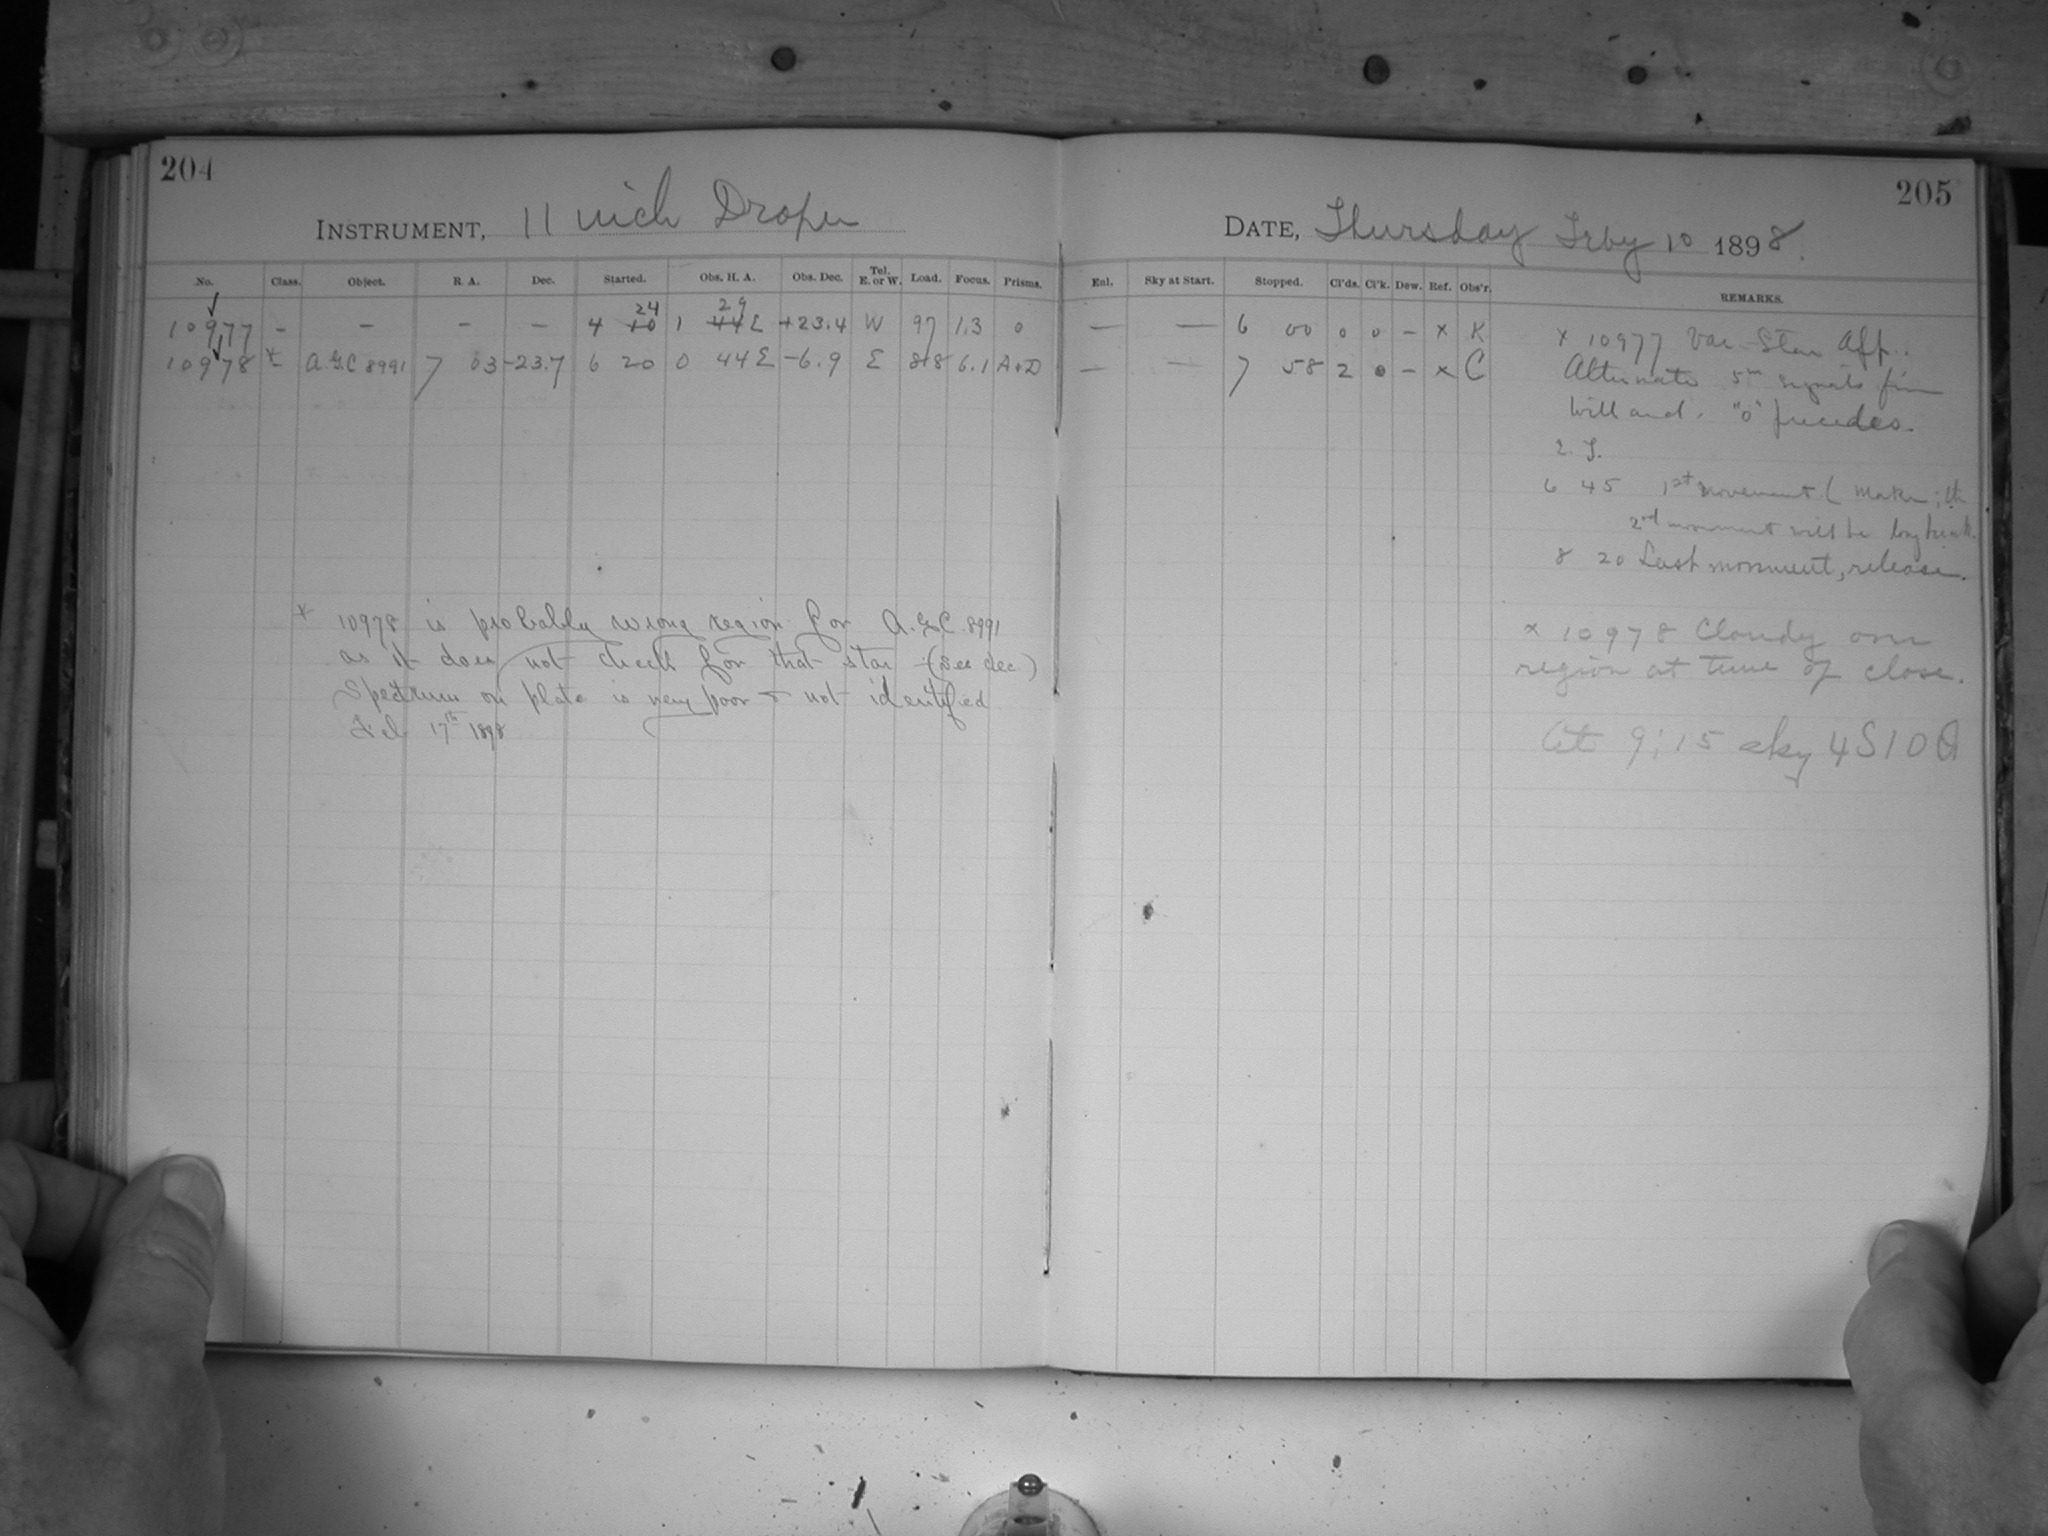 204
INSTRUMENT, 11 inch Draper
No. Class. Object. R. A. Dec. Started. Obs. H. A. Obs. Dec. Tel. E. or W. Load. Focus. Prisms.
24 29
10977 - - - - 4 10 1 44 E +23.4 W 97 1.3 0
10978 * A.G.C 8991 7 03 -23.7 6 20 0 44 E -6.9 E 818 6.1 A+D
* 10978 is probably wrong region for A.G.C. 8991
as it does not check for that star (see dec.)
Spectrum on plate is very poor & not identified
Feb. 17th 1898
205
DATE, Thursday Feby 10 1898.
Enl. Sky at Start. Stopped. Cl'ds. Cl'k. Dew. Ref. Obs'r. REMARKS.
— — 6 00 0 0 - x K
— — 7 58 2 0 - x C
x 10977 Var. Star App.
Alternate 5m signals fine
Will and. "0" precedes.
E. F.
6 45 1st movement ( ; the
2nd movement will be long break.
8 20 Last movement, release.
x 10978 Cloudy over
region at time of close.
At 9:15 sky 4S10Q